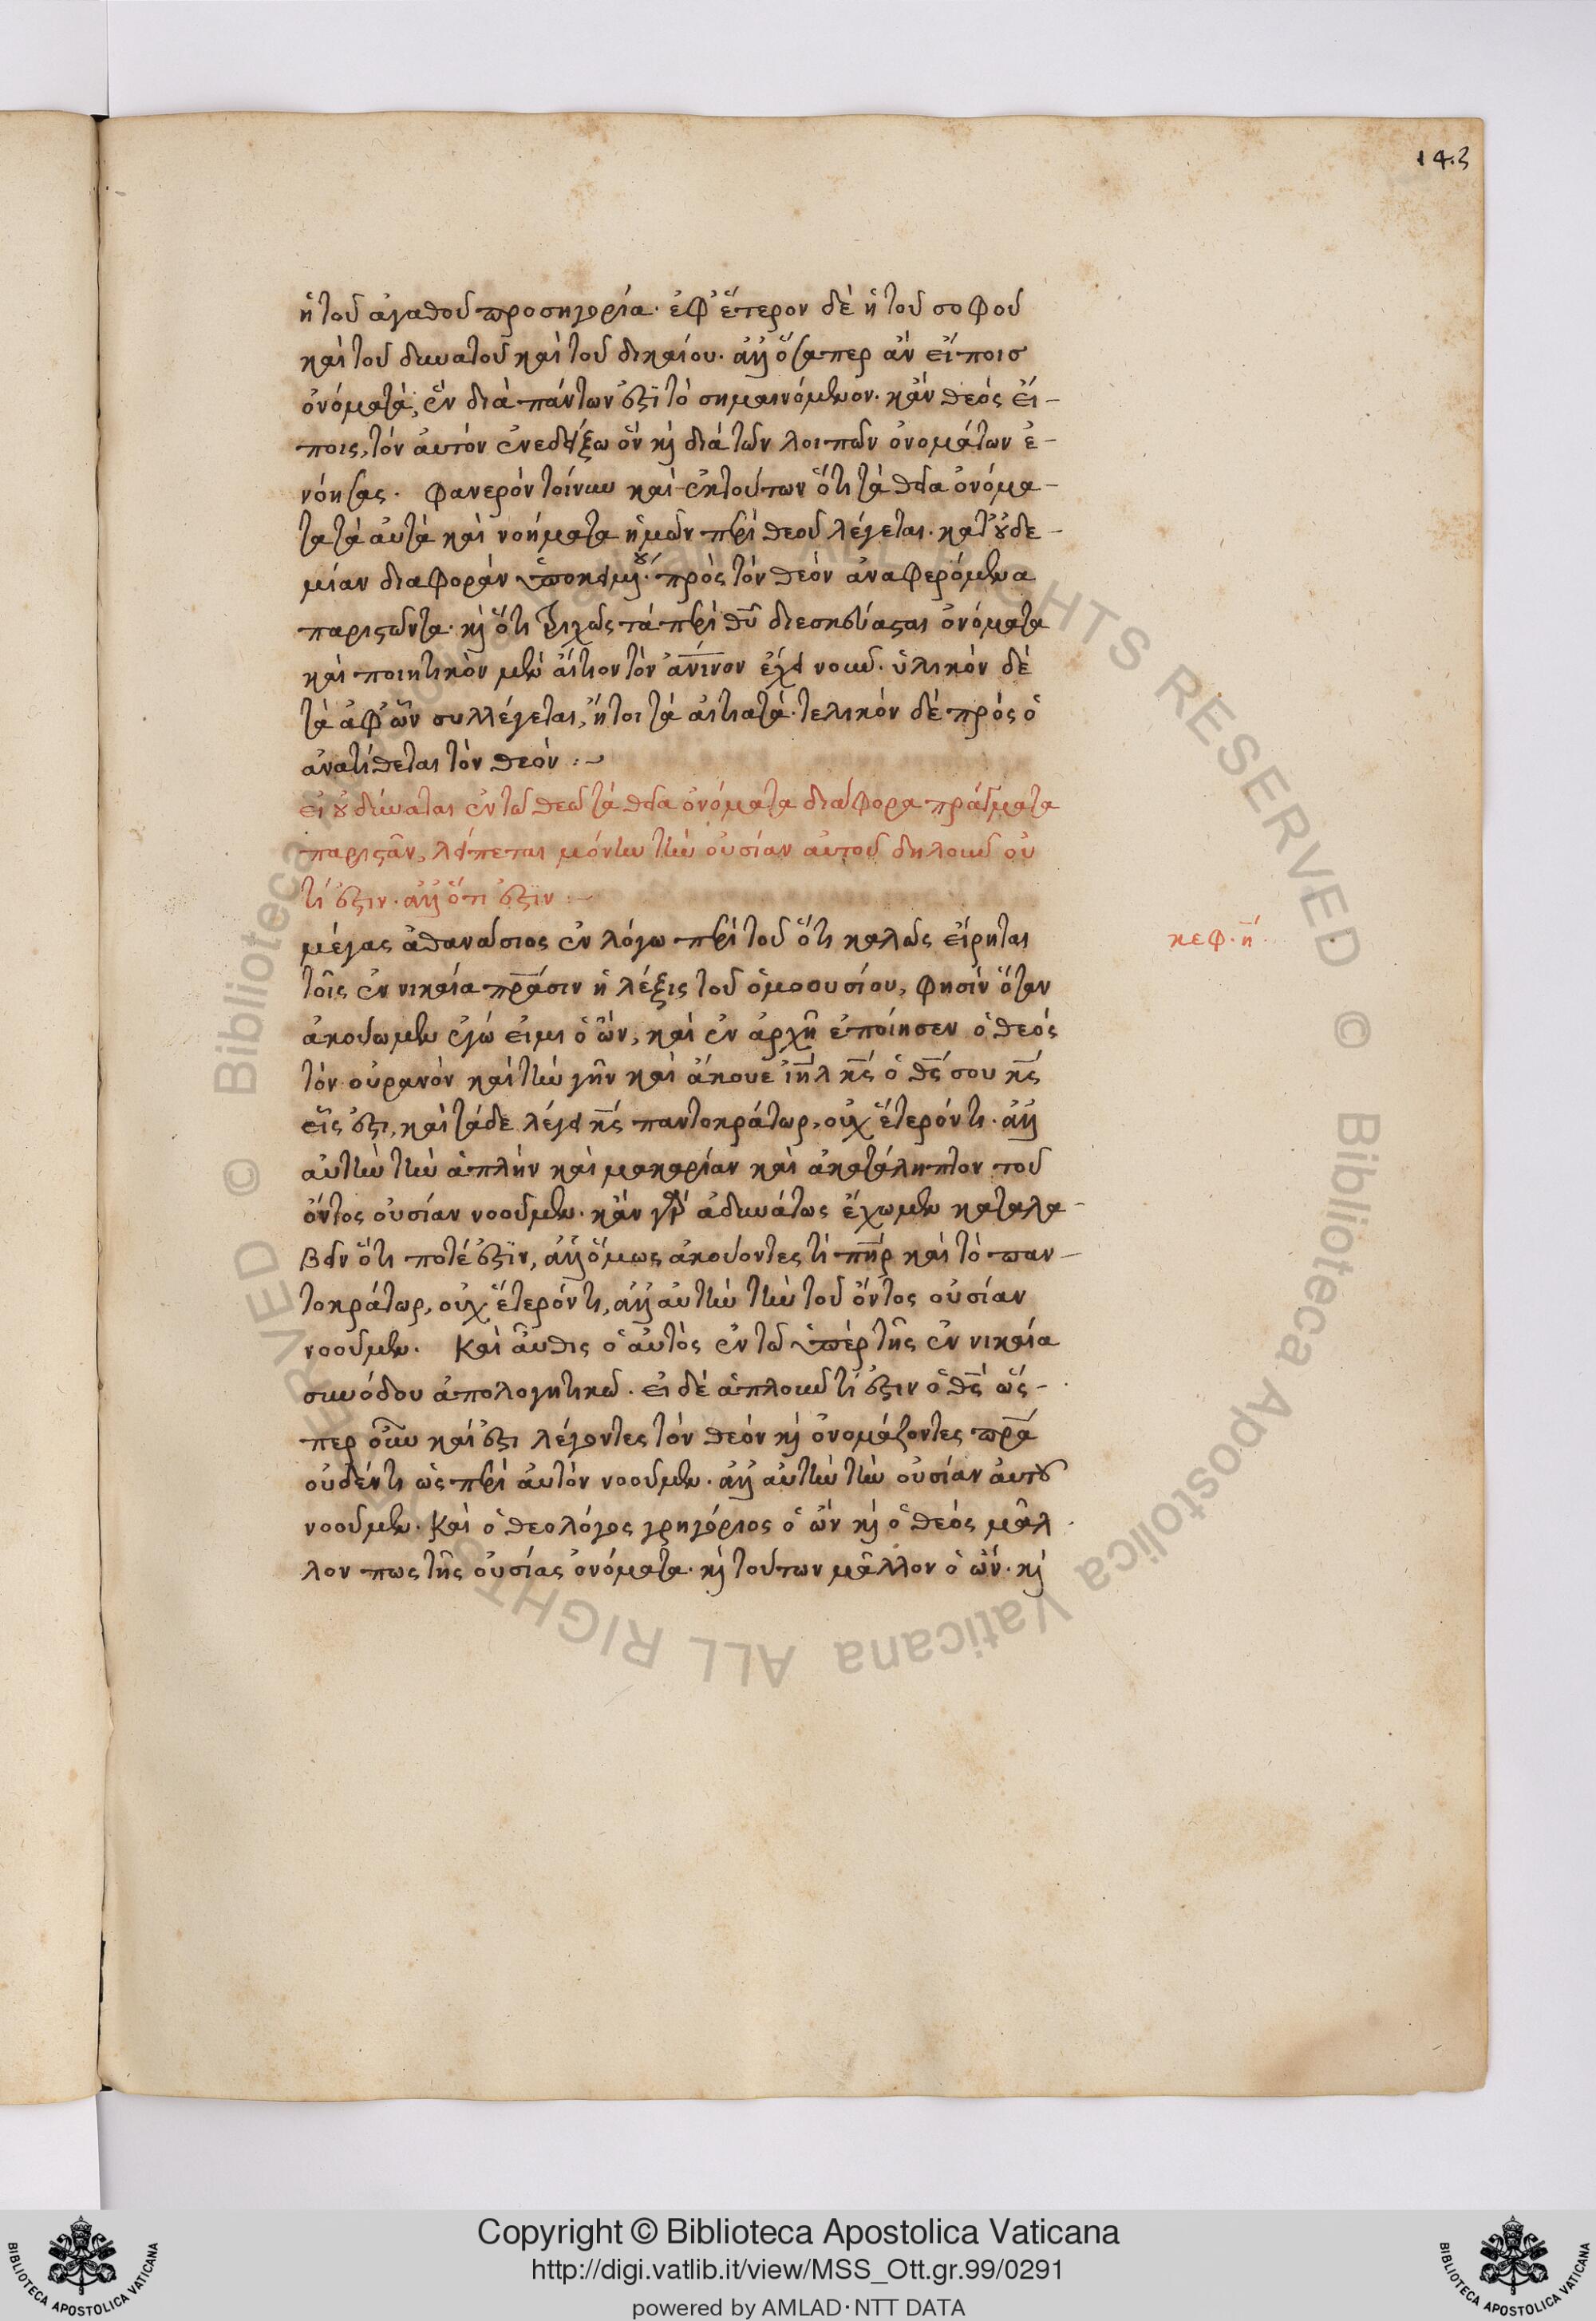 143
ἡ τοῦ ἀγαθοῦ προσηγορία· ἐφ' ἕτερον δὲ ἡ τοῦ σοφοῦ
καὶ τοῦ δυνατοῦ καὶ τοῦ δικαίου· ἀλλ' ὅσαπερ ἂν εἴποις
ὀνόματα, ἓν διὰ πάντων ἐστὶ τὸ σημαινόμενον· κἂν θεὸς εἴ-
ποις, τὸν αὐτὸν ἐνεδείξω ὃν κ διὰ τῶν λοιπῶν ὀνομάτων ἐ-
νόησας· φανερὸν τοίνυν καὶ ἐκ τούτων ὅτι τὰ θεῖα ὀνόμα-
τα τὰ αὐτὰ καὶ νοήματα ἡμῶν περὶ θεοῦ λέγεται· κατ' οὐδε-
μίαν διαφορὰν ὑποκειμένου πρὸς τὸν θεὸν ἀναφερόμενα
παριστῶντα· κ ὅτι τριχῶς τὰ περὶ θυ διεσκεύασται ὀνόματα
καὶ ποιητικὸν μὲν αἴτιον τὸν ἀνινον ἔχει νοῦν· ὑλικὸν δὲ
τὰ ἀφ' ὧν συλλέγεται, ἤτοι τὰ αἰτιατά· τελικὸν δὲ πρὸς ὃ
ἀνατίθεται τὸν θεόν :~
εἰ οὐ δύναται ἐν τῶ θεῶ τὰ θεῖα ὀνόματα διάφορα πράγματα
παριστᾶν, λείπεται μόνην τὴν οὐσίαν αὐτοῦ δηλοῦν οὐ
τί ἐστιν· ἀλλ' ὅτι ἐστίν :~
μέγας ἀθανάσιος ἐν λόγω περὶ τοῦ ὅτι καλῶς εἴρηται
κεφ· η
τοῖς ἐν νικαία πράσιν ἡ λέξις τοῦ ὁμοουσίου, φησὶν ὅταν
ἀκούωμεν ἐγώ εἰμι ὁ ὤν, καὶ ἐν ἀρχῆ ἐποίησεν ὁ θεὸς
τὸν οὐρανὸν καὶ τὴν γῆν καὶ ἄκουε ιηλ κς ὁ θς σου κς
εἷς ἐστι, καὶ τάδε λέγει κς παντοκράτωρ, οὐχ ἕτερόν τι· ἀλλ'
αὐτὴν τὴν ἁπλῆν καὶ μακαρίαν καὶ ἀκατάληπτον τοῦ
ὄντος οὐσίαν νοοῦμεν· κἂν γὰρ ἀδυνάτως ἔχωμεν καταλα-
βεῖν ὅτι ποτέ ἐστιν, ἀλλ' ὅμως ἀκούοντες τὶ πηρ καὶ τὸ παν-
τοκράτωρ, οὐχ ἕτερόν τι, ἀλλ' αὐτὴν τὴν τοῦ ὄντος οὐσίαν
νοοῦμεν. Καὶ αὖθις ὁ αὐτὸς ἐν τῶ ὑπὲρ τῆς ἐν νικαία
συνόδου ἀπολογητικῶ· εἰ δὲ ἁπλοῦν τί ἐστιν ὁ θς ὥς-
περ οὖν καὶ ἐστι λέγοντες τὸν θεὸν κ ὀνομάζοντες πρα
οὐδέν τι ὡς περὶ αὐτὸν νοοῦμεν· ἀλλ' αὐτὴν τὴν οὐσίαν αὐτοῦ
νοοῦμεν. Καὶ ὁ θεολόγος γρηγόριος ὁ ὢν κ ὁ θεὸς μᾶλ
λον πως τῆς οὐσίας ὀνόματα· κ τούτων μᾶλλον ὁ ὤν· κ
Copyright © Biblioteca Apostolica Vaticana
http://digi.vatlib.it/view/MSS_Ott.gr.99/0291
powered by AMLAD·NTT DATA